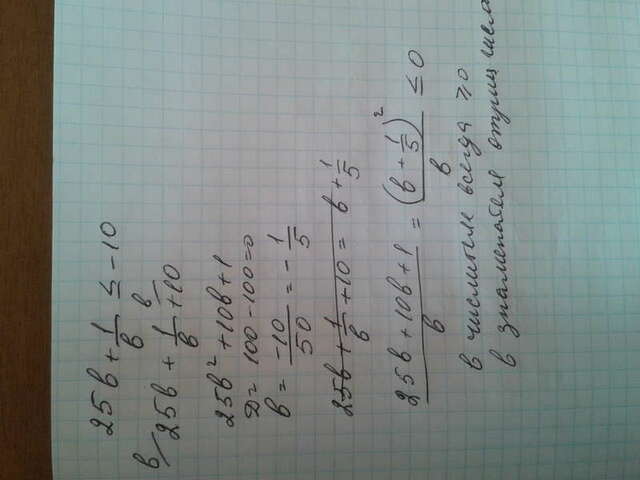 25в + 1/в ≤ -10
в/ 25в + 1/в + 10 /в
25в² + 10в + 1
D = 100 - 100 = 0
в = -10/50 = - 1/5
25в + 1/в + 10 = в + 1/5
25в + 10в + 1 / в = (в + 1/5)² / в ≤ 0
в числителе всегда ≥ 0
в знаменателе отриц числ